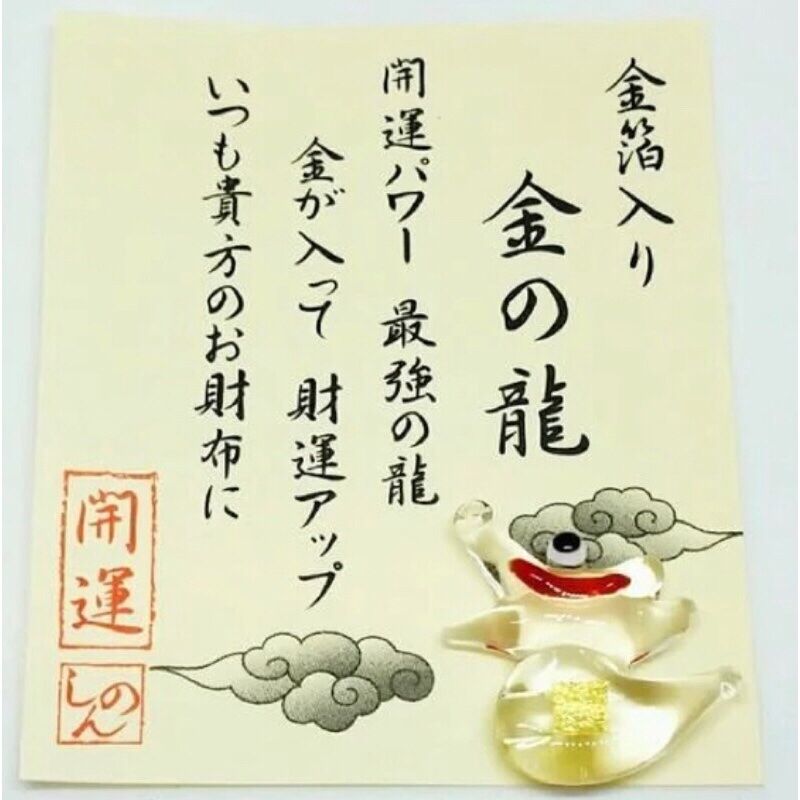 金箔入り
金の龍
開運パワー 最強の龍
金が入って 財運アップ
いつも貴方のお財布に
開運
のしん